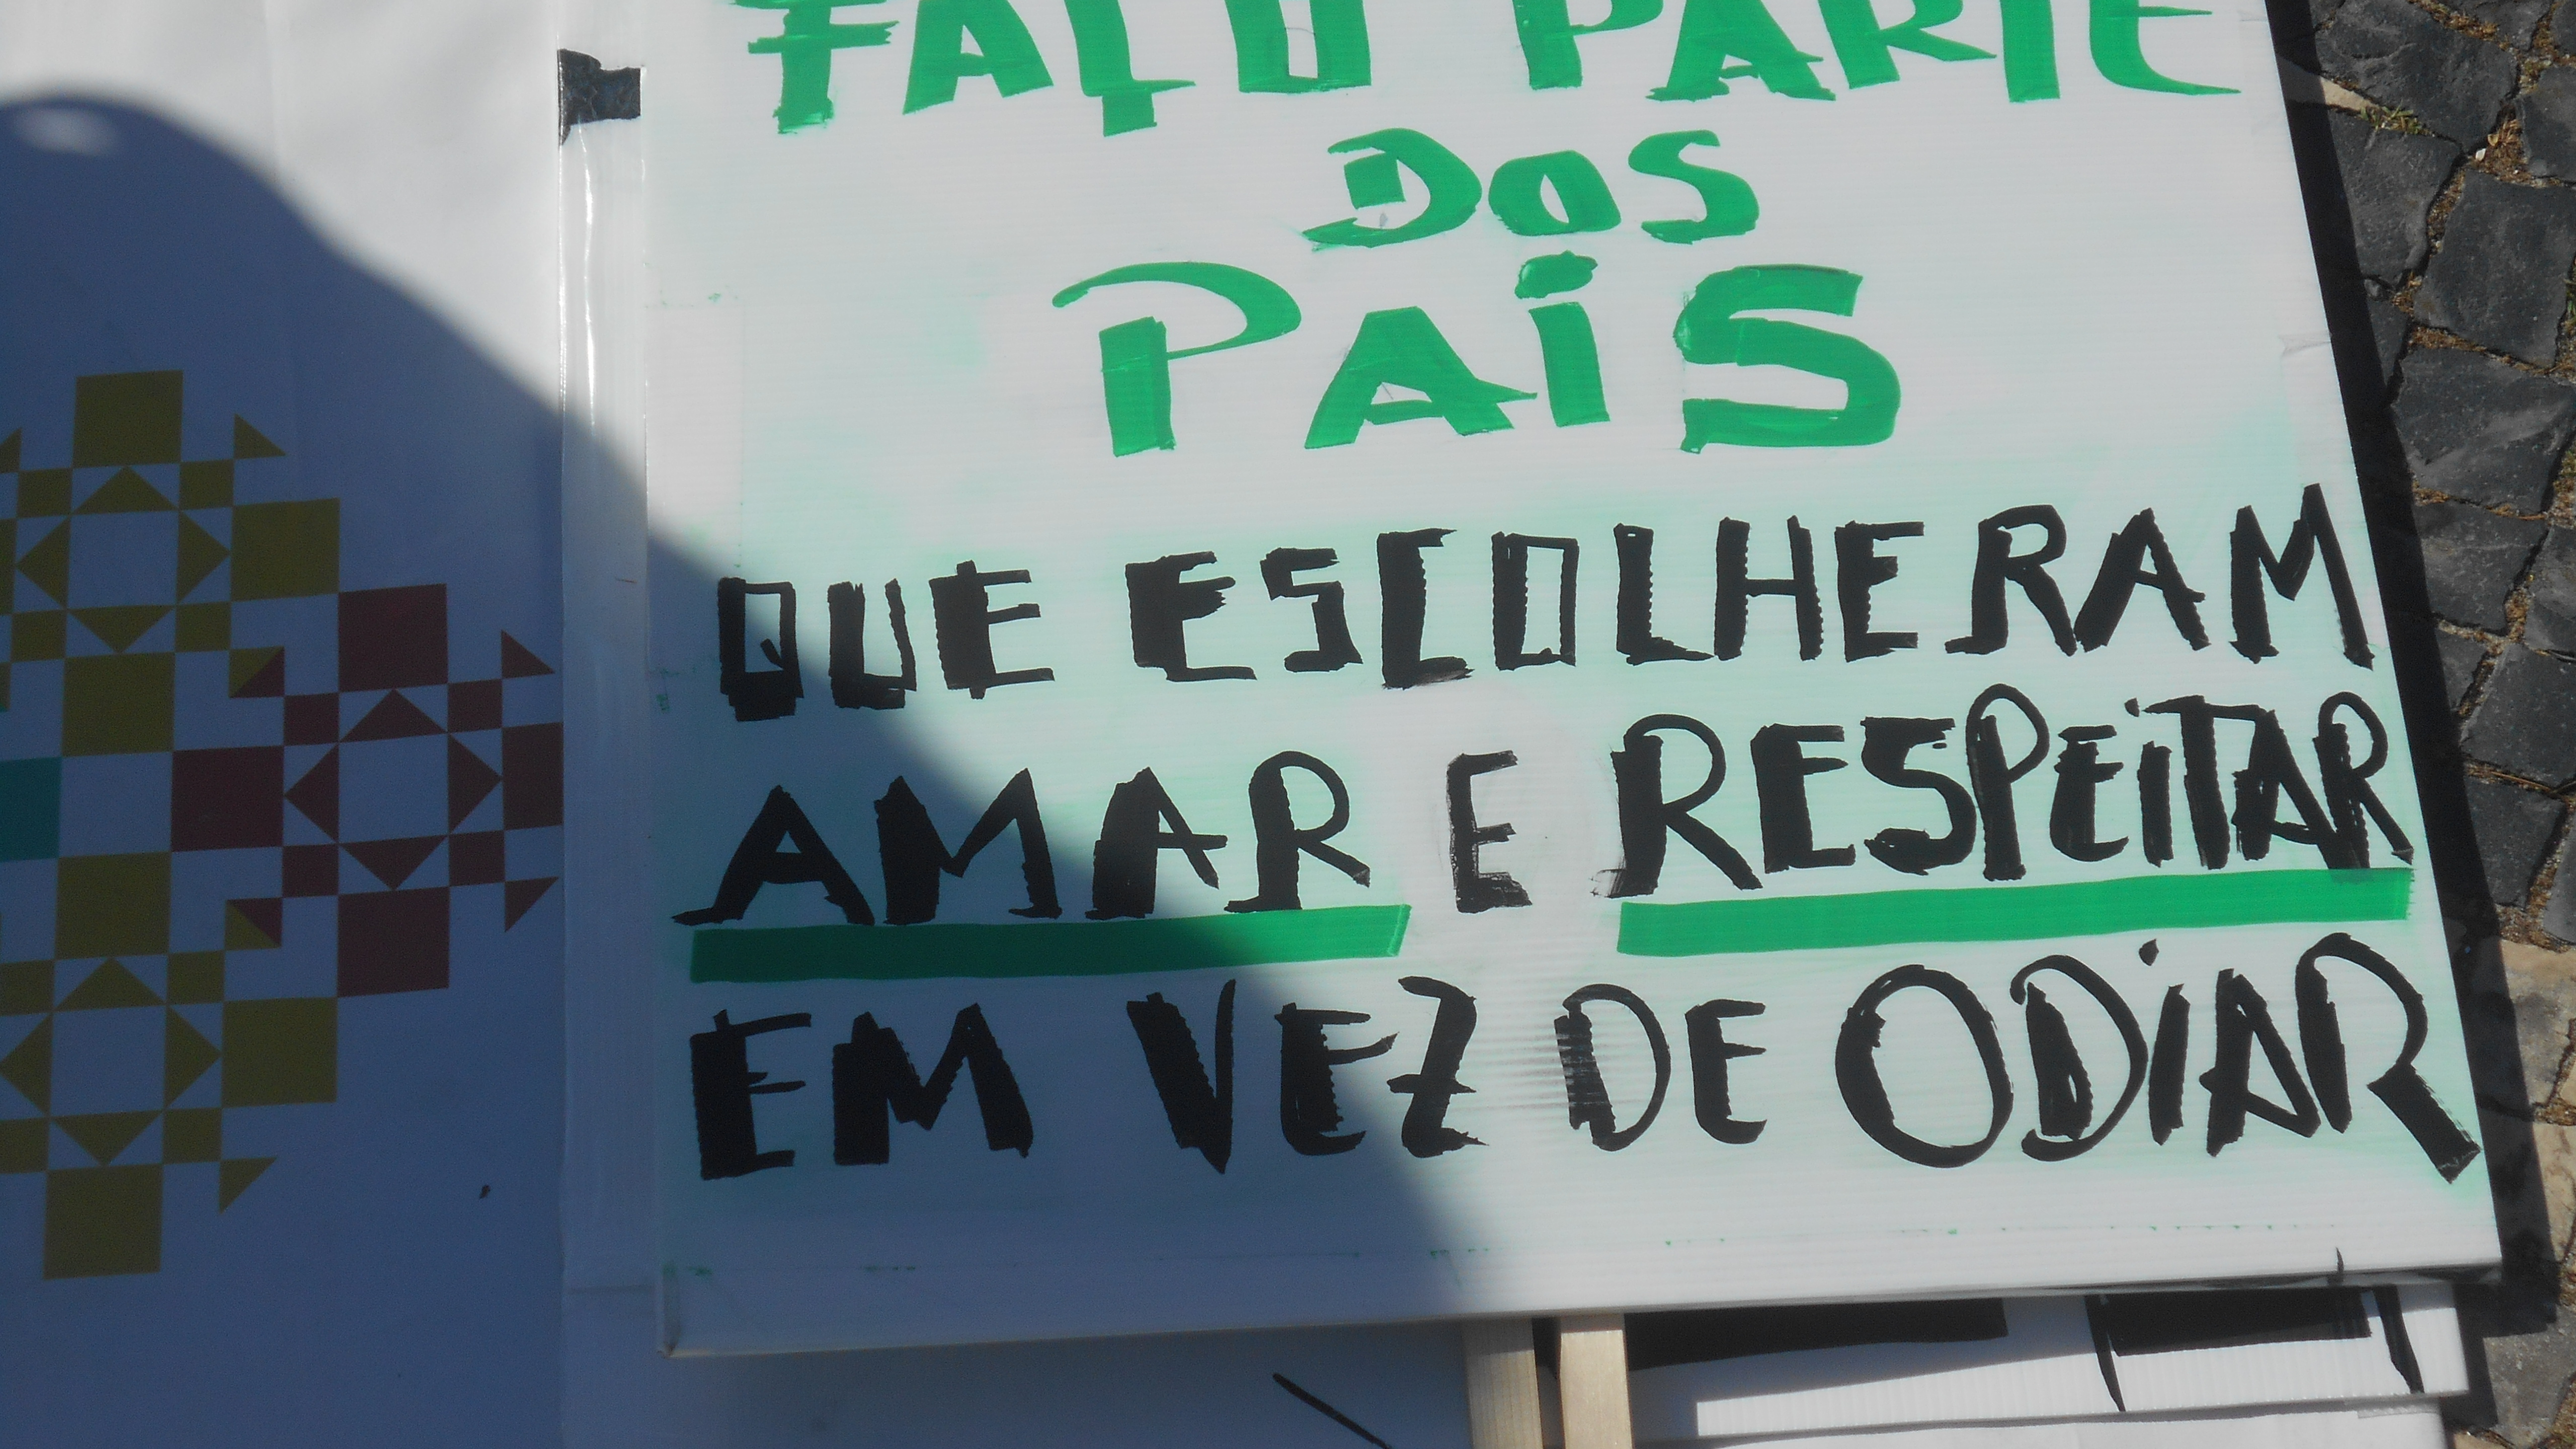 FAÇO PARTE
DOS
PAiS
QUE ESCOLHERAM
AMAR E RESPEiTAR
EM VEZ DE ODiAR